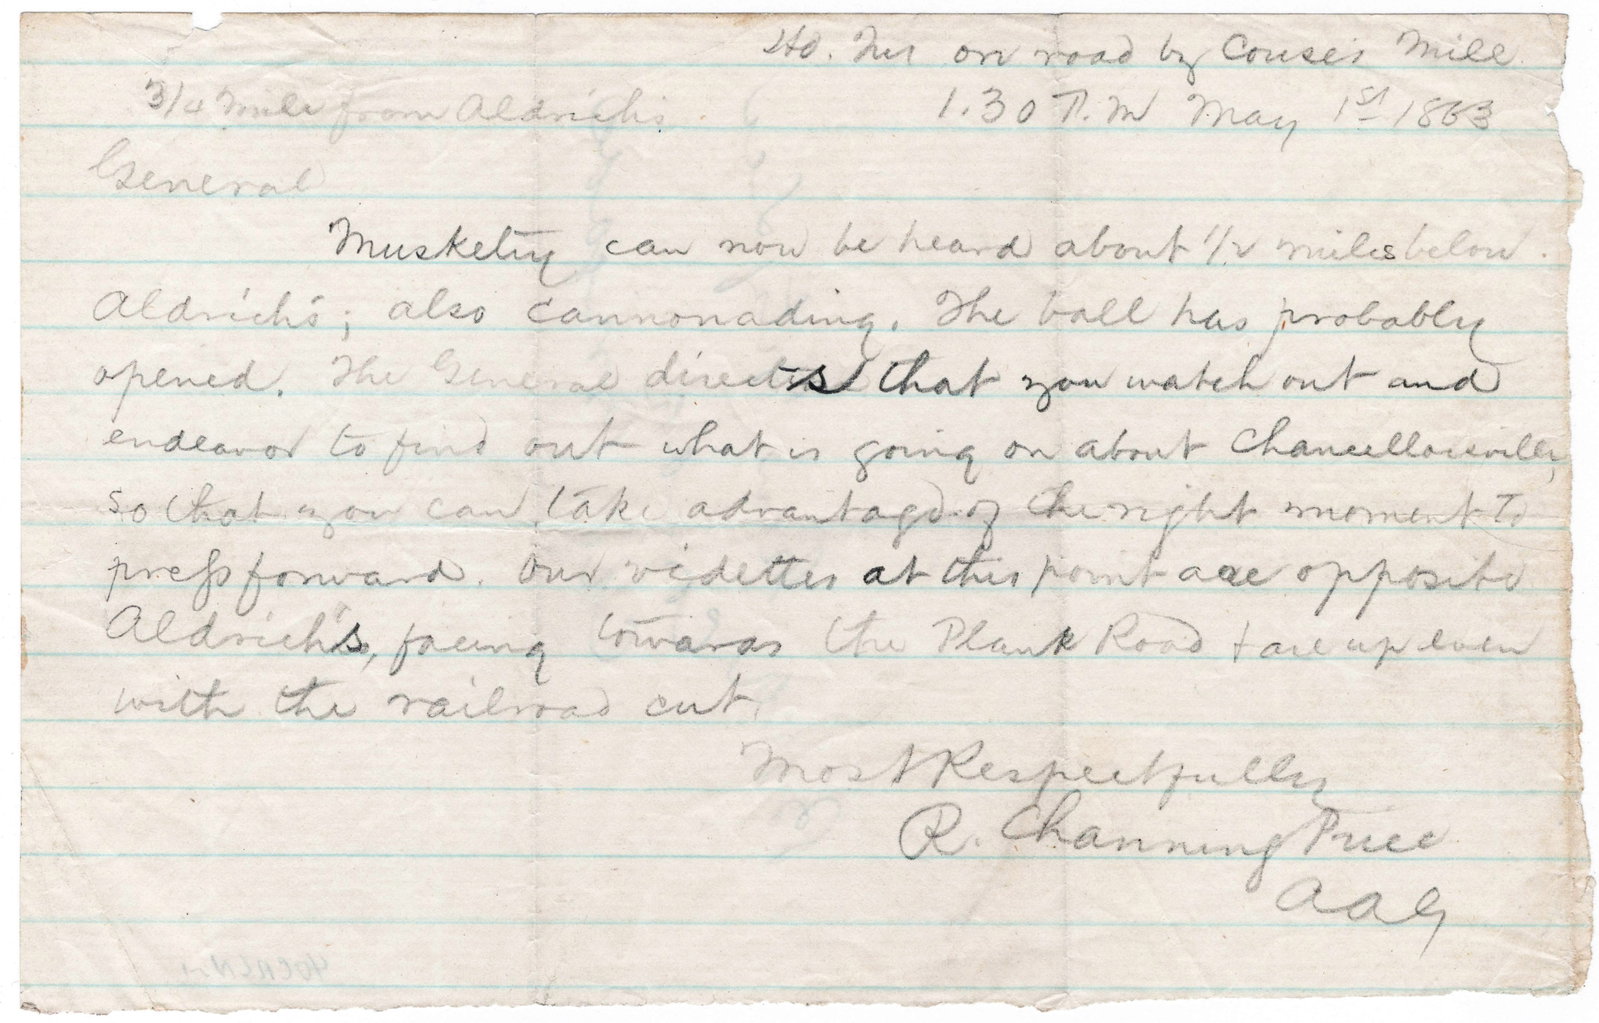 Hd. Qrs on road by Couse's Mill
3/4 mile from Aldrich's. 1.30 P.M May 1st 1863
General
Musketry can now be heard about 1/2 miles below
Aldrich's; also cannonading. The ball has probably
opened. The General directs that you watch out and
endeavor to find out what is going on about Chancellorsville,
so that you can take advantage of the right moment to
press forward. Our videttes at this point are opposite
Aldrich's, facing towards the Plank Road + are up even
with the railroad cut.
Most Respectfully
R. Channing Price
AAG